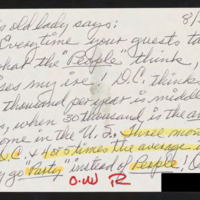 s old lady says: 8/
Everytime your guests ta
hat the "People" think,
ises my ire! D.C. think
thousand per year is middl
s, when 30 thousand is the a
ome in the U.S. Three mon
D.C. & 4 or 5 times the average i
y go "Party" instead of People! O
O.W R